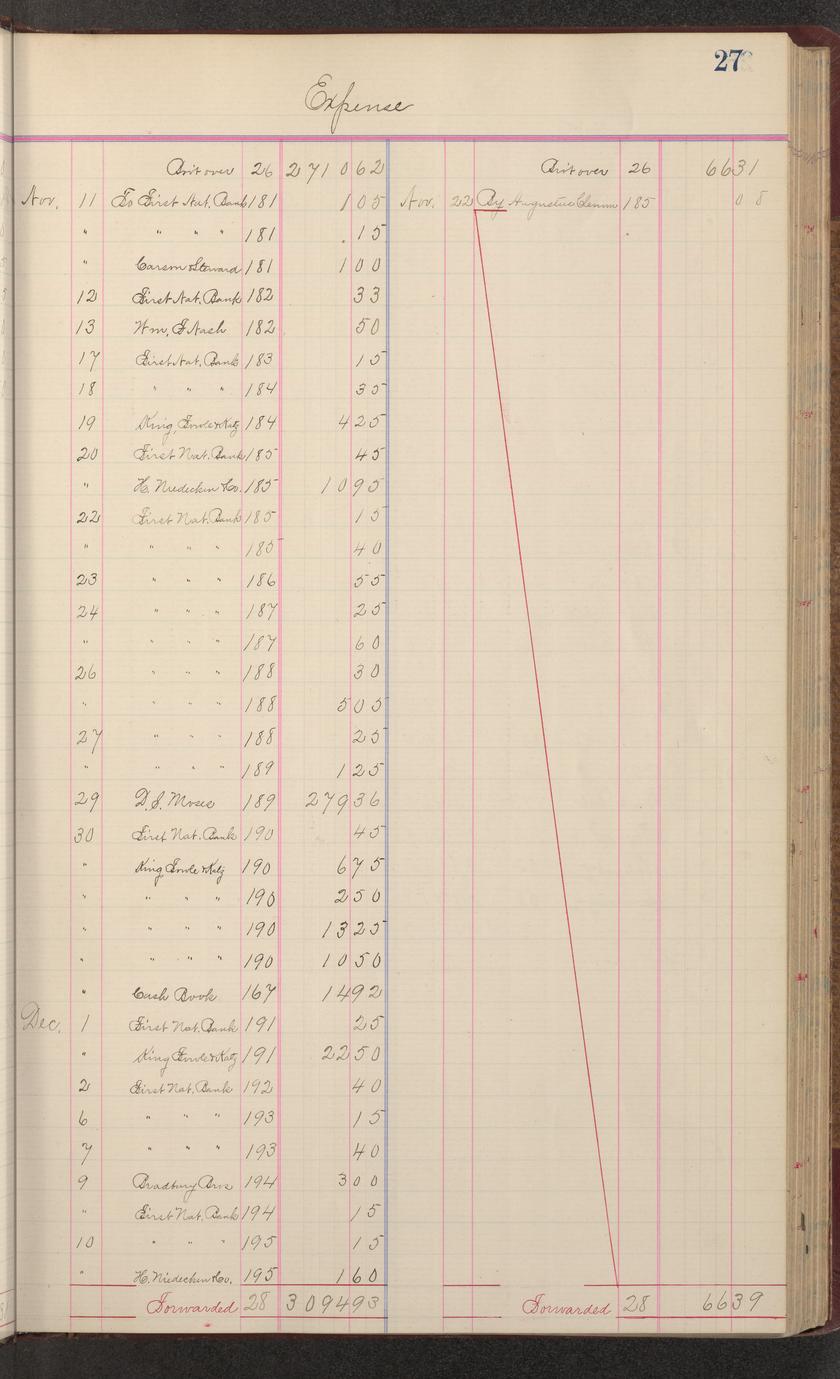 27
Expense
Brit over 26 2710 62 Brit over 26 66 31
Nov. 11 To First Nat. Bank 181 1 05 Nov. 22 By Augustus 185 08
" " " " 181 .15
" Carson & Steward 181 1 00
12 First Nat. Bank 182 33
13 Wm, F Nash 182 50
17 First Nat. Bank 183 15
18 " " " 184 35
19 King, & Katz 184 4 25
20 First Nat. Bank 185 45
" H. Niedecken & Co. 185 10 95
22 First Nat. Bank 185 15
" " " " 185 40
23 " " " 186 55
24 " " " 187 25
" " " " 187 60
26 " " " 188 30
" " " " 188 5 05
27 " " " 188 25
" " " " 189 1 25
29 D. S. Moses 189 279 36
30 First Nat. Bank 190 45
" King & Katz 190 6 75
" " " " 190 2 50
" " " " 190 13 25
" " " " 190 10 50
" Cash Book 167 14 92
Dec. 1 First Nat. Bank 191 25
" King & Katz 191 22 50
2 First Nat. Bank 192 40
6 " " " 193 15
7 " " " 193 40
9 Bradbury Bros 194 3 00
" First Nat. Bank 194 15
10 " " " 195 15
" H. Niedecken & Co. 195 1 60
Forwarded 28 3094 93 Forwarded 28 66 39